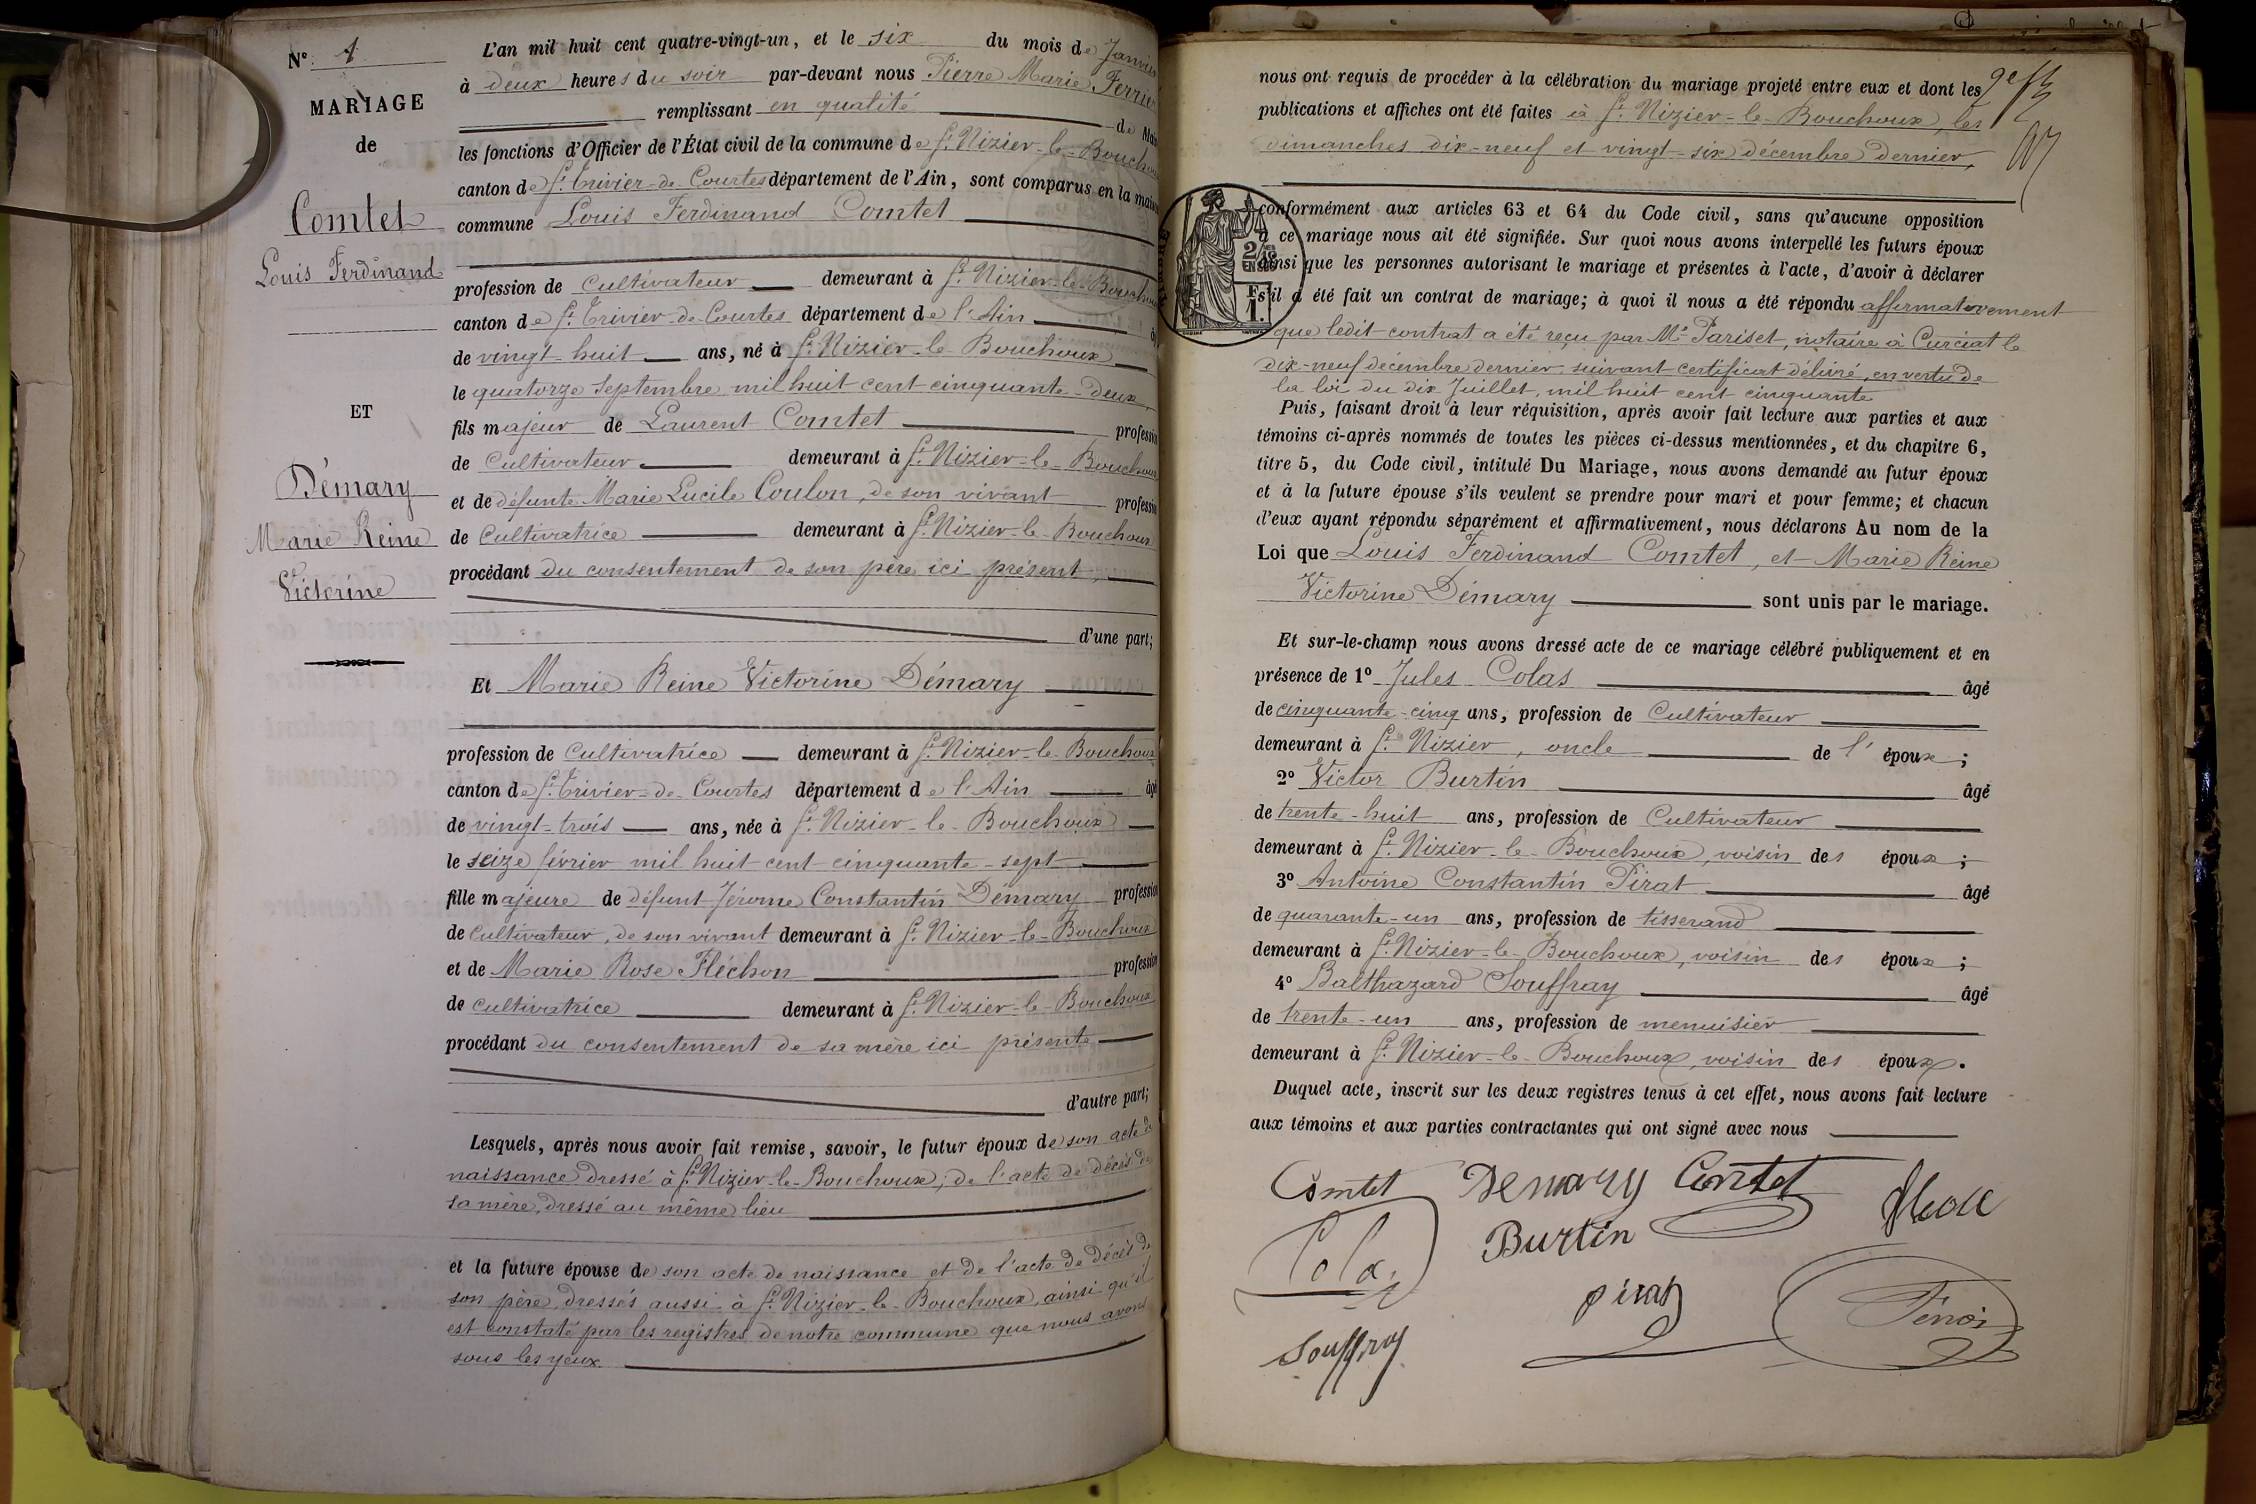 N° 1
MARIAGE
de
Comtet
Louis Ferdinand
ET
Démary
Marie Reine
Victorine
L'an mil huit cent quatre-vingt-un, et le six du mois de Janvier
à deux heures du soir par-devant nous Pierre Marie Ferrier
remplissant en qualité de Maire
les fonctions d'Officier de l'État civil de la commune de St. Nizier-le-Bouchoux
canton de St. Trivier-de-Courtes département de l'Ain, sont comparus en la maison
commune Louis Ferdinand Comtet
profession de Cultivateur demeurant à St. Nizier-le-Bouchoux
canton de St. Trivier-de-Courtes département de l'Ain
de vingt-huit ans, né à St. Nizier-le-Bouchoux
le quatorze Septembre mil huit cent cinquante-deux,
fils majeur de Laurent Comtet profession
de Cultivateur demeurant à St. Nizier-le-Bouchoux
et de défunte Marie Lucile Coulon, de son vivant profession
de Cultivatrice demeurant à St. Nizier-le-Bouchoux
procédant du consentement de son père ici présent,
d'une part;
Et Marie Reine Victorine Démary
profession de Cultivatrice demeurant à St. Nizier-le-Bouchoux
canton de St. Trivier-de-Courtes département de l'Ain âgé
de vingt-trois ans, née à St. Nizier-le-Bouchoux
le seize février mil huit cent cinquante-sept
fille majeure de défunt Jérome Constantin Démary profession
de Cultivateur, de son vivant demeurant à St. Nizier-le-Bouchoux
et de Marie Rose Fléchon profession
de cultivatrice demeurant à St. Nizier-le-Bouchoux
procédant du consentement de sa mère ici présente
d'autre part;
Lesquels, après nous avoir fait remise, savoir, le futur époux de son acte de
naissance dressé à St. Nizier-le-Bouchoux; de l'acte de décès de
sa mère, dressé au même lieu
et la future épouse de son acte de naissance et de l'acte de décès de
son père, dressés aussi à St. Nizier-le-Bouchoux, ainsi qu'il
est constaté par les registres de notre commune que nous avons
sous les yeux.
nous ont requis de procéder à la célébration du mariage projeté entre eux et dont les
publications et affiches ont été faites à St. Nizier-le-Bouchoux, les
dimanches dix-neuf et vingt-six décembre dernier,
conformément aux articles 63 et 64 du Code civil, sans qu'aucune opposition
à ce mariage nous ait été signifiée. Sur quoi nous avons interpellé les futurs époux
ainsi que les personnes autorisant le mariage et présentes à l'acte, d'avoir à déclarer
s'il a été fait un contrat de mariage; à quoi il nous a été répondu affirmativement
que ledit contrat a été reçu par Me Pariset, notaire à Curciat le
dix-neuf décembre dernier, suivant certificat délivré, en vertu de
la loi du dix Juillet, mil huit cent cinquante
Puis, faisant droit à leur réquisition, après avoir fait lecture aux parties et aux
témoins ci-après nommés de toutes les pièces ci-dessus mentionnées, et du chapitre 6,
titre 5, du Code civil, intitulé Du Mariage, nous avons demandé au futur époux
et à la future épouse s'ils veulent se prendre pour mari et pour femme; et chacun
d'eux ayant répondu séparément et affirmativement, nous déclarons Au nom de la
Loi que Louis Ferdinand Comtet, et Marie Reine
Victorine Démary sont unis par le mariage.
Et sur-le-champ nous avons dressé acte de ce mariage célébré publiquement et en
présence de 1° Jules Colas âgé
de cinquante-cinq ans, profession de Cultivateur
demeurant à St. Nizier, oncle de l' époux;
2° Victor Burtin âgé
de trente-huit ans, profession de Cultivateur
demeurant à St. Nizier-le-Bouchoux, voisin des époux;
3° Antoine Constantin Pirat âgé
de quarante-un ans, profession de tisserand
demeurant à St. Nizier-le-Bouchoux, voisin des époux;
4° Balthazard Souffray âgé
de trente-un ans, profession de menuisier
demeurant à St. Nizier-le-Bouchoux, voisin des époux.
Duquel acte, inscrit sur les deux registres tenus à cet effet, nous avons fait lecture
aux témoins et aux parties contractantes qui ont signé avec nous
Comtet Demary Contet
Colas Burtin
pirat
Souffray